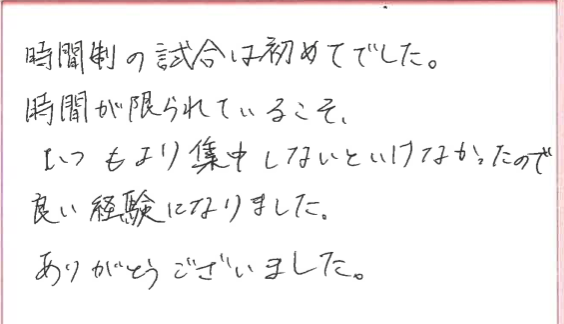 時間制の試合は初めてでした。
時間が限られているこそ、
いつもより集中しないといけなかったので
良い経験になりました。
ありがとうございました。